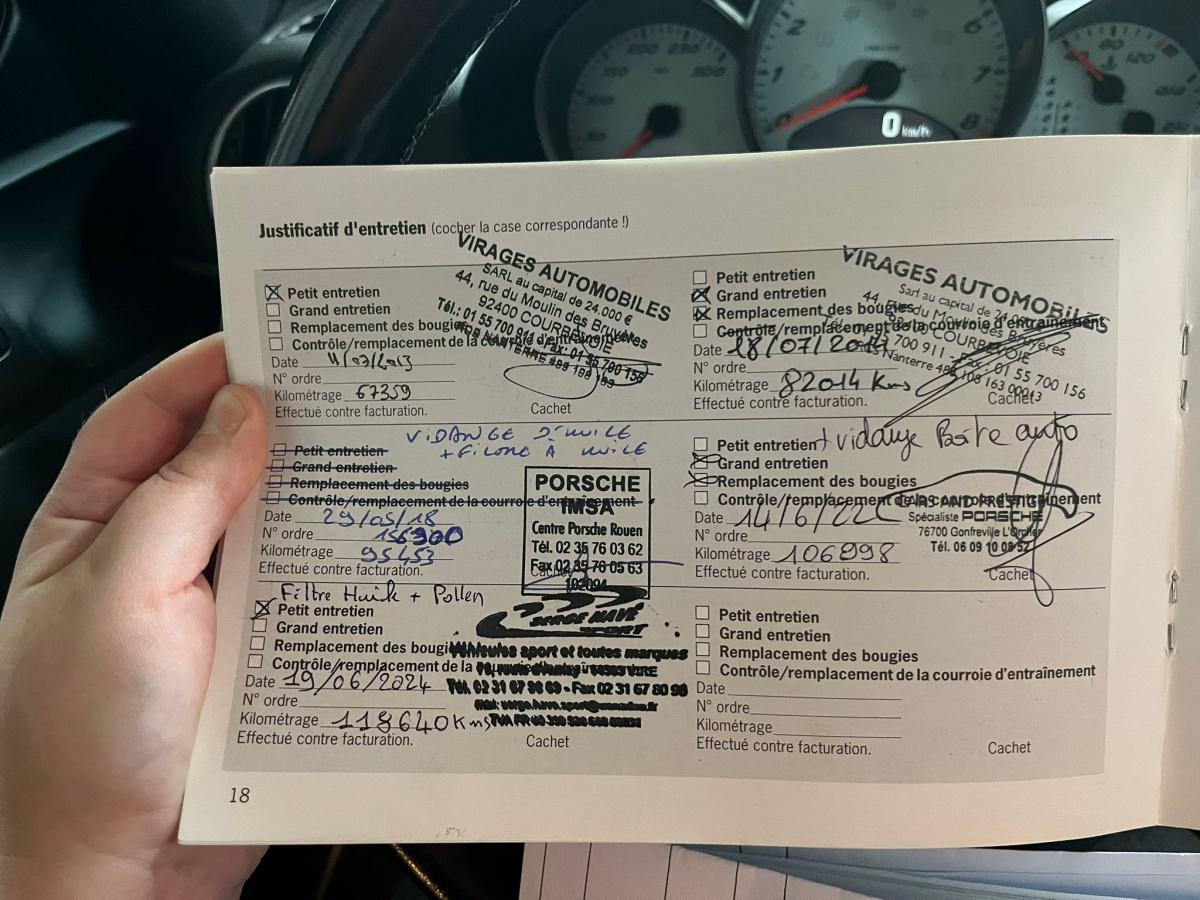 200 250
150
300
100
50
1
2
6
7
8
0 km/h
80
120
Justificatif d'entretien (cocher la case correspondante !)
VIRAGES AUTOMOBILES
SARL au capital de 24.000 €
44, rue du Moulin des Bruyères
92400 COURBEVOIE
Tél.: 01 55 700 911 - Fax: 01 55 700 156
Petit entretien
Grand entretien
Remplacement des bougies
Contrôle/remplacement de la courroie d'entraînement
Date 11/07/2013
N° ordre
Kilométrage 67359
Effectué contre facturation.
Cachet
VIRAGES AUTOMOBILES
Sarl au capital de
44, rue du Moulin des Bruyères
COURBEVOIE
700 911 - Fax: 01 55 700 156
Nanterre
Petit entretien
Grand entretien
Remplacement des bougies
Contrôle/remplacement de la courroie d'entraînement
Date 18/07/2014
N° ordre
Kilométrage 82014 Kms
Effectué contre facturation.
Cachet
VIDANGE D'HUILE
+ FILTRE A HUILE
Petit entretien
Grand entretien
Remplacement des bougies
Contrôle/remplacement de la courroie d'entraînement
Date 29/05/18
N° ordre
Kilométrage 95453
Effectué contre facturation.
Cachet
PORSCHE
IMSA
Centre Porsche Rouen
Tél. 02 35 76 03 62
Fax 02 35 76 05 63
102094
Petit entretien + vidange Boite auto
Grand entretien
Remplacement des bougies
Contrôle/remplacement de la courroie d'entraînement
Date 14/6/22
N° ordre
Kilométrage 106998
Effectué contre facturation.
Cachet
CARS AND PRESTIGE
Spécialiste PORSCHE
76700 Gonfreville L'Orcher
Tél. 06 09 10 08 52
Filtre Huile + Pollen
Petit entretien
Grand entretien
Remplacement des bougies
Contrôle/remplacement de la
Date 19/06/2024
N° ordre
Kilométrage 118640 Kms
Effectué contre facturation.
Cachet
SERGE HAVÉ
SPORT
Véhicules sport et toutes marques
VIRE
Tél. 02 31 67 98 69 - Fax 02 31 67 80 98
Petit entretien
Grand entretien
Remplacement des bougies
Contrôle/remplacement de la courroie d'entraînement
Date
N° ordre
Kilométrage
Effectué contre facturation.
Cachet
18